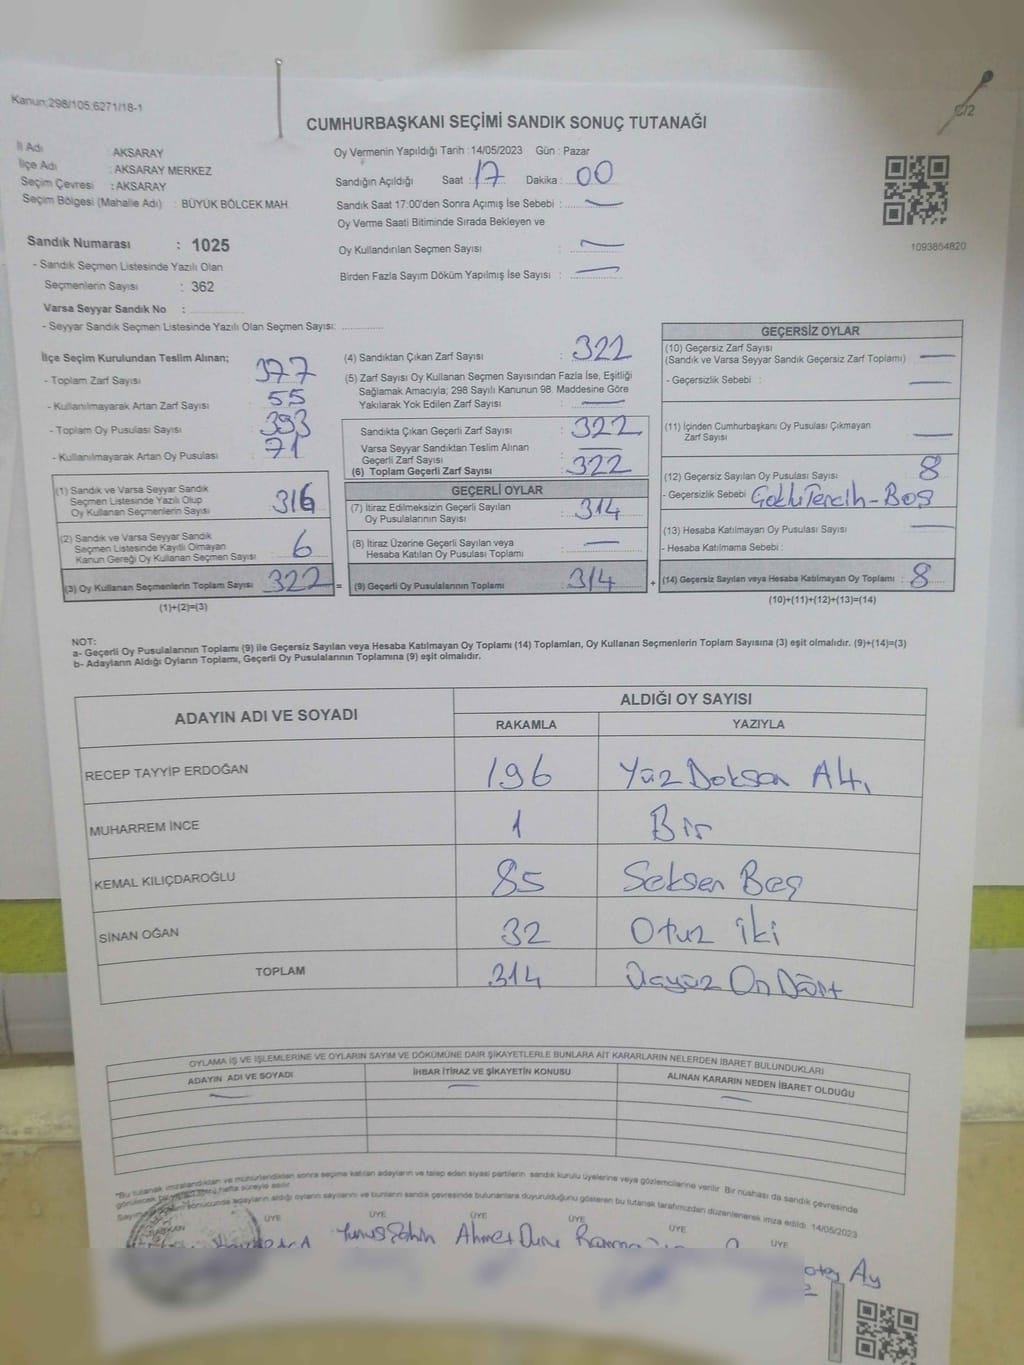 Kanun:298/105,6271/18-1
C/2
CUMHURBAŞKANI SEÇİMİ SANDIK SONUÇ TUTANAĞI
İl Adı : AKSARAY
İlçe Adı : AKSARAY MERKEZ
Seçim Çevresi : AKSARAY
Seçim Bölgesi (Mahalle Adı) : BÜYÜK BÖLCEK MAH.
Sandık Numarası : 1025
- Sandık Seçmen Listesinde Yazılı Olan
Seçmenlerin Sayısı : 362
Varsa Seyyar Sandık No :
- Seyyar Sandık Seçmen Listesinde Yazılı Olan Seçmen Sayısı:
Oy Vermenin Yapıldığı Tarih :14/05/2023 Gün : Pazar
Sandığın Açıldığı Saat : 17 Dakika : 00
Sandık Saat 17:00'den Sonra Açımış İse Sebebi : —
Oy Verme Saati Bitiminde Sırada Bekleyen ve
Oy Kullandırılan Seçmen Sayısı : —
Birden Fazla Sayım Döküm Yapılmış İse Sayısı : —
1093864820
İlçe Seçim Kurulundan Teslim Alınan;
- Toplam Zarf Sayısı : 377
- Kullanılmayarak Artan Zarf Sayısı : 55
- Toplam Oy Pusulası Sayısı : 393
- Kullanılmayarak Artan Oy Pusulası : 71
(1) Sandık ve Varsa Seyyar Sandık
Seçmen Listesinde Yazılı Olup
Oy Kullanan Seçmenlerin Sayısı : 316
(2) Sandık ve Varsa Seyyar Sandık
Seçmen Listesinde Kayıtlı Olmayan
Kanun Gereği Oy Kullanan Seçmen Sayısı : 6
(3) Oy Kullanan Seçmenlerin Toplam Sayısı : 322 =
(1)+(2)=(3)
(4) Sandıktan Çıkan Zarf Sayısı : 322
(5) Zarf Sayısı Oy Kullanan Seçmen Sayısından Fazla İse, Eşitliği
Sağlamak Amacıyla; 298 Sayılı Kanunun 98. Maddesine Göre
Yakılarak Yok Edilen Zarf Sayısı : —
Sandıkta Çıkan Geçerli Zarf Sayısı : 322
Varsa Seyyar Sandıktan Teslim Alınan
Geçerli Zarf Sayısı : —
(6) Toplam Geçerli Zarf Sayısı : 322
GEÇERLİ OYLAR
(7) İtiraz Edilmeksizin Geçerli Sayılan
Oy Pusulalarının Sayısı : 314
(8) İtiraz Üzerine Geçerli Sayılan veya
Hesaba Katılan Oy Pusulası Toplamı : —
(9) Geçerli Oy Pusulalarının Toplamı : 314 +
GEÇERSİZ OYLAR
(10) Geçersiz Zarf Sayısı
(Sandık ve Varsa Seyyar Sandık Geçersiz Zarf Toplamı) : —
- Geçersizlik Sebebi : —
(11) İçinden Cumhurbaşkanı Oy Pusulası Çıkmayan
Zarf Sayısı : —
(12) Geçersiz Sayılan Oy Pusulası Sayısı : 8
- Geçersizlik Sebebi : Çoklu Tercih - Boş
(13) Hesaba Katılmayan Oy Pusulası Sayısı : —
- Hesaba Katılmama Sebebi :
(14) Geçersiz Sayılan veya Hesaba Katılmayan Oy Toplamı : 8
(10)+(11)+(12)+(13)=(14)
NOT:
a- Geçerli Oy Pusulalarının Toplamı (9) ile Geçersiz Sayılan veya Hesaba Katılmayan Oy Toplamı (14) Toplamları, Oy Kullanan Seçmenlerin Toplam Sayısına (3) eşit olmalıdır. (9)+(14)=(3)
b- Adayların Aldığı Oyların Toplamı, Geçerli Oy Pusulalarının Toplamına (9) eşit olmalıdır.
ADAYIN ADI VE SOYADI
ALDIĞI OY SAYISI
RAKAMLA YAZIYLA
RECEP TAYYİP ERDOĞAN 196 Yüz Doksan Altı
MUHARREM İNCE 1 Bir
KEMAL KILIÇDAROĞLU 85 Seksen Beş
SİNAN OĞAN 32 Otuz iki
TOPLAM 314 Üçyüz On Dört
OYLAMA İŞ VE İŞLEMLERİNE VE OYLARIN SAYIM VE DÖKÜMÜNE DAİR ŞİKAYETLERLE BUNLARA AİT KARARLARIN NELERDEN İBARET BULUNDUKLARI
ADAYIN ADI VE SOYADI İHBAR İTİRAZ VE ŞİKAYETİN KONUSU ALINAN KARARIN NEDEN İBARET OLDUĞU
— — —
*Bu tutanak imzalandıktan ve mühürlendikten sonra seçime katılan adayların ve talep eden siyasi partilerin sandık kurulu üyelerine veya gözlemcilerine verilir. Bir nüshası da sandık çevresinde
görülecek bir hafta süreyle asılır.
sonucunda adayların aldığı oyların sayılarını ve bunların sandık çevresinde bulunanlara duyurulduğunu gösteren bu tutanak tarafımızdan düzenlenerek imza edildi. 14/05/2023
BAŞKAN ÜYE ÜYE ÜYE ÜYE ÜYE ÜYE
Yunus Şahin Ahmet Ay